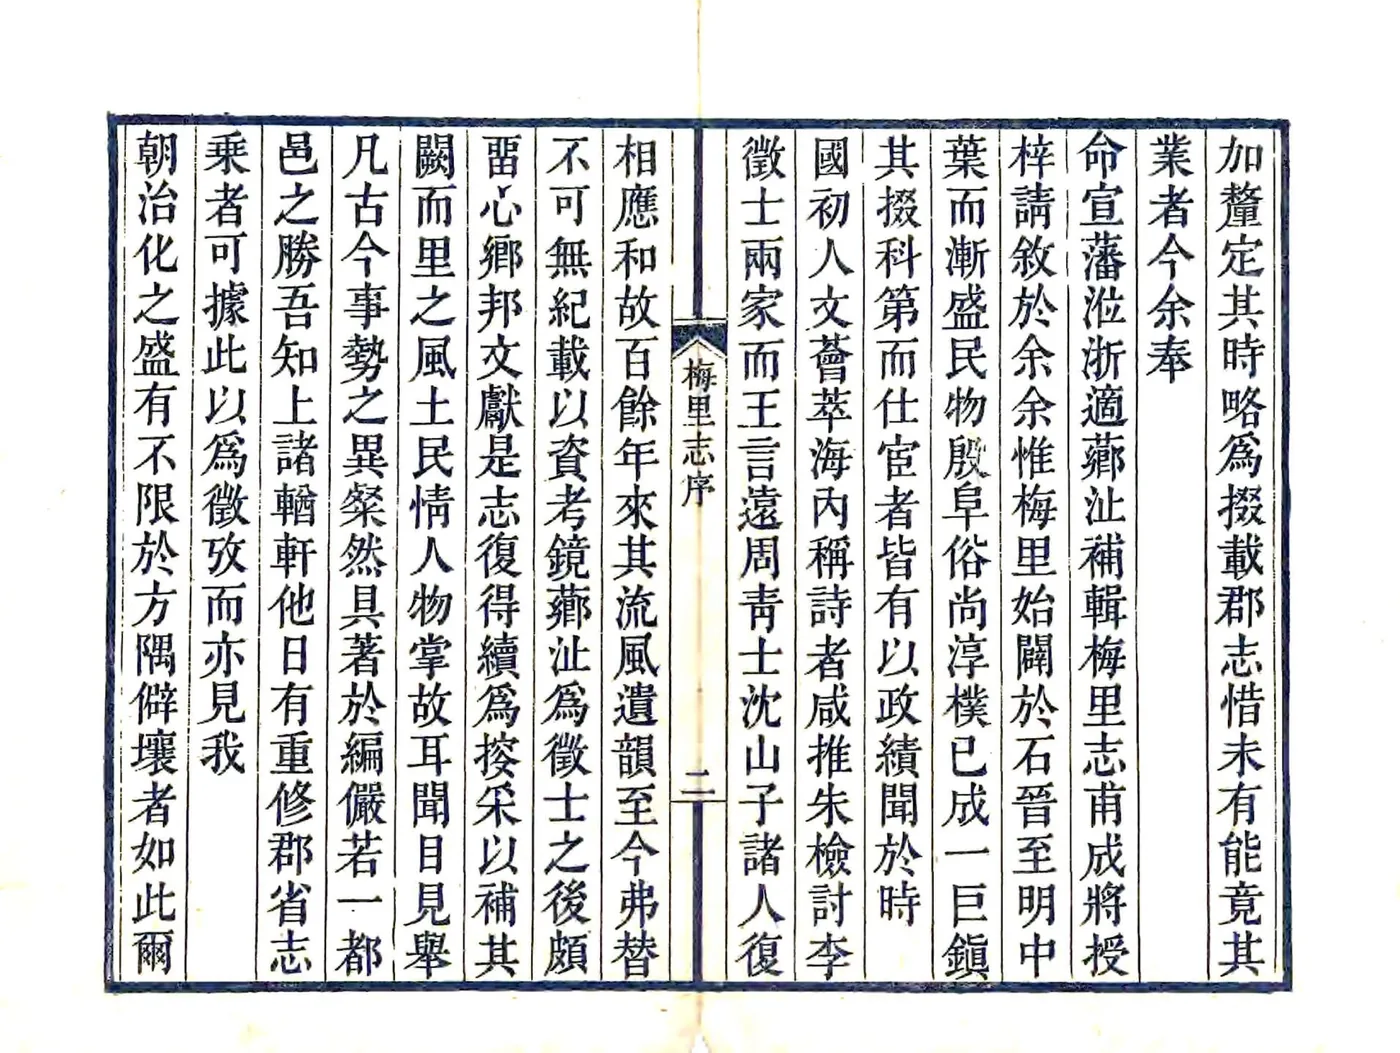 加釐定其時略爲掇載郡志惜未有能竟其
業者今余奉
命宣藩涖浙適薌沚補輯梅里志甫成將授
梓請敘於余余惟梅里始闢於石晉至明中
葉而漸盛民物殷阜俗尚淳樸已成一巨鎭
其掇科第而仕宦者皆有以政績聞於時
國初人文薈萃海內稱詩者咸推朱檢討李
徵士兩家而王言遠周靑士沈山子諸人復
梅里志序
二
相應和故百餘年來其流風遺韻至今弗替
不可無紀載以資考鏡薌沚爲徵士之後頗
畱心鄉邦文獻是志復得續爲㨔采以補其
闕而里之風土民情人物掌故耳聞目見舉
凡古今事勢之異粲然具著於編儼若一都
邑之勝吾知上諸輶軒他日有重修郡省志
乘者可據此以爲徵攷而亦見我
朝治化之盛有不限於方隅僻壤者如此爾